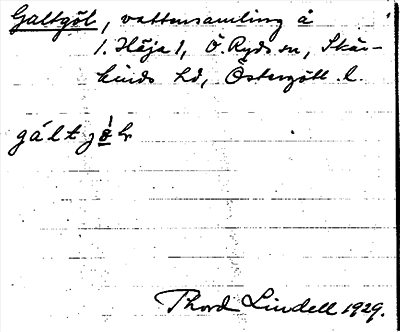 Galtgöl, vattensamling å
1. Höja 1, Ö. Ryds sn, Skär-
kinds hd, Östergötl. l.
gáltjö̀l
Thord Lindell 1929.